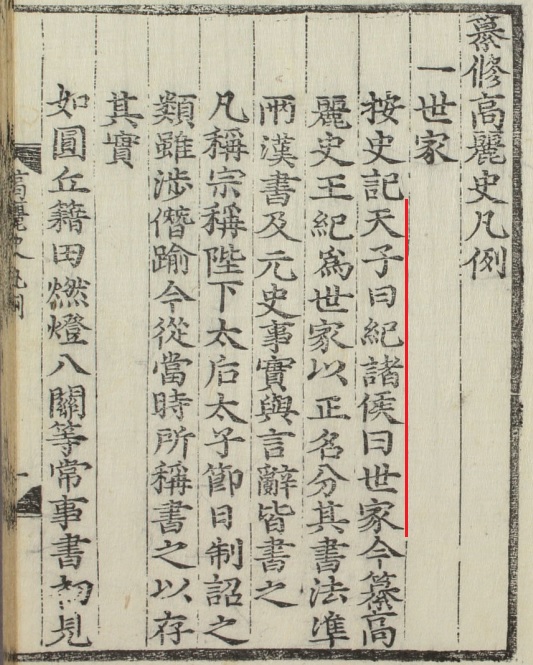 纂修高麗史凡例
一世家
按史記天子曰紀諸侯曰世家今纂高
麗史王紀爲世家以正名分其書法準
兩漢書及元史事實與言辭皆書之
凡稱宗稱陛下太后太子節日制詔之
類雖涉僭踰今從當時所稱書之以存
其實
如圓丘籍田燃燈八關等常事書初見
高麗史凡例
一